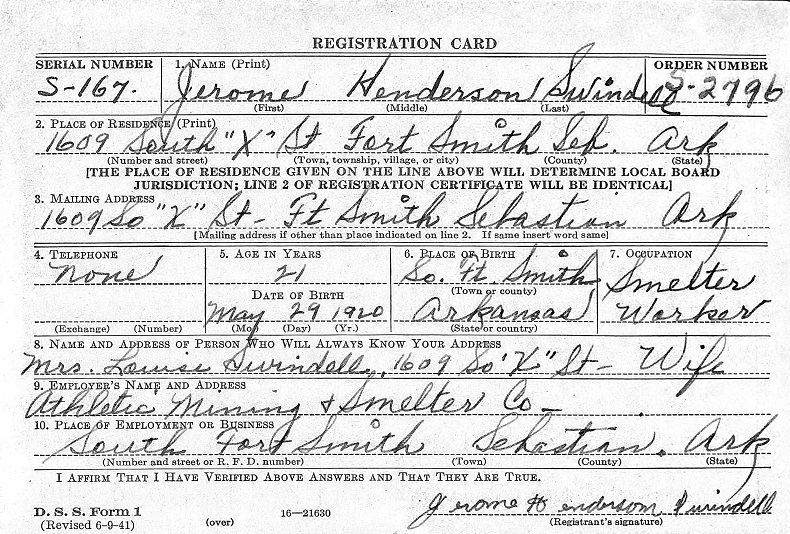 REGISTRATION CARD
SERIAL NUMBER 1. NAME (Print) ORDER NUMBER
S-167. Jerome Henderson Swindell S-2796
(First) (Middle) (Last)
2. PLACE OF RESIDENCE (Print)
1609 South "X" St Fort Smith Seb. Ark
(Number and street) (Town, township, village, or city) (County) (State)
[THE PLACE OF RESIDENCE GIVEN ON THE LINE ABOVE WILL DETERMINE LOCAL BOARD
JURISDICTION; LINE 2 OF REGISTRATION CERTIFICATE WILL BE IDENTICAL]
3. MAILING ADDRESS
1609 So "X" St - Ft Smith Sebastian Ark
[Mailing address if other than place indicated on line 2. If same insert word same]
4. TELEPHONE 5. AGE IN YEARS 6. PLACE OF BIRTH 7. OCCUPATION
None 21 So. Ft. Smith Smelter
DATE OF BIRTH (Town or county)
May 29 1920 Arkansas Worker
(Exchange) (Number) (Mo.) (Day) (Yr.) (State or country)
8. NAME AND ADDRESS OF PERSON WHO WILL ALWAYS KNOW YOUR ADDRESS
Mrs. Louise Swindell, 1609 So "X" St - Wife
9. EMPLOYER'S NAME AND ADDRESS
Athletic Mining & Smelter Co -
10. PLACE OF EMPLOYMENT OR BUSINESS
South Fort Smith Sebastian. Ark
(Number and street or R. F. D. number) (Town) (County) (State)
I AFFIRM THAT I HAVE VERIFIED ABOVE ANSWERS AND THAT THEY ARE TRUE.
Jerome Henderson Swindell
D. S. S. Form 1 (over) 16—21630 (Registrant's signature)
(Revised 6-9-41)